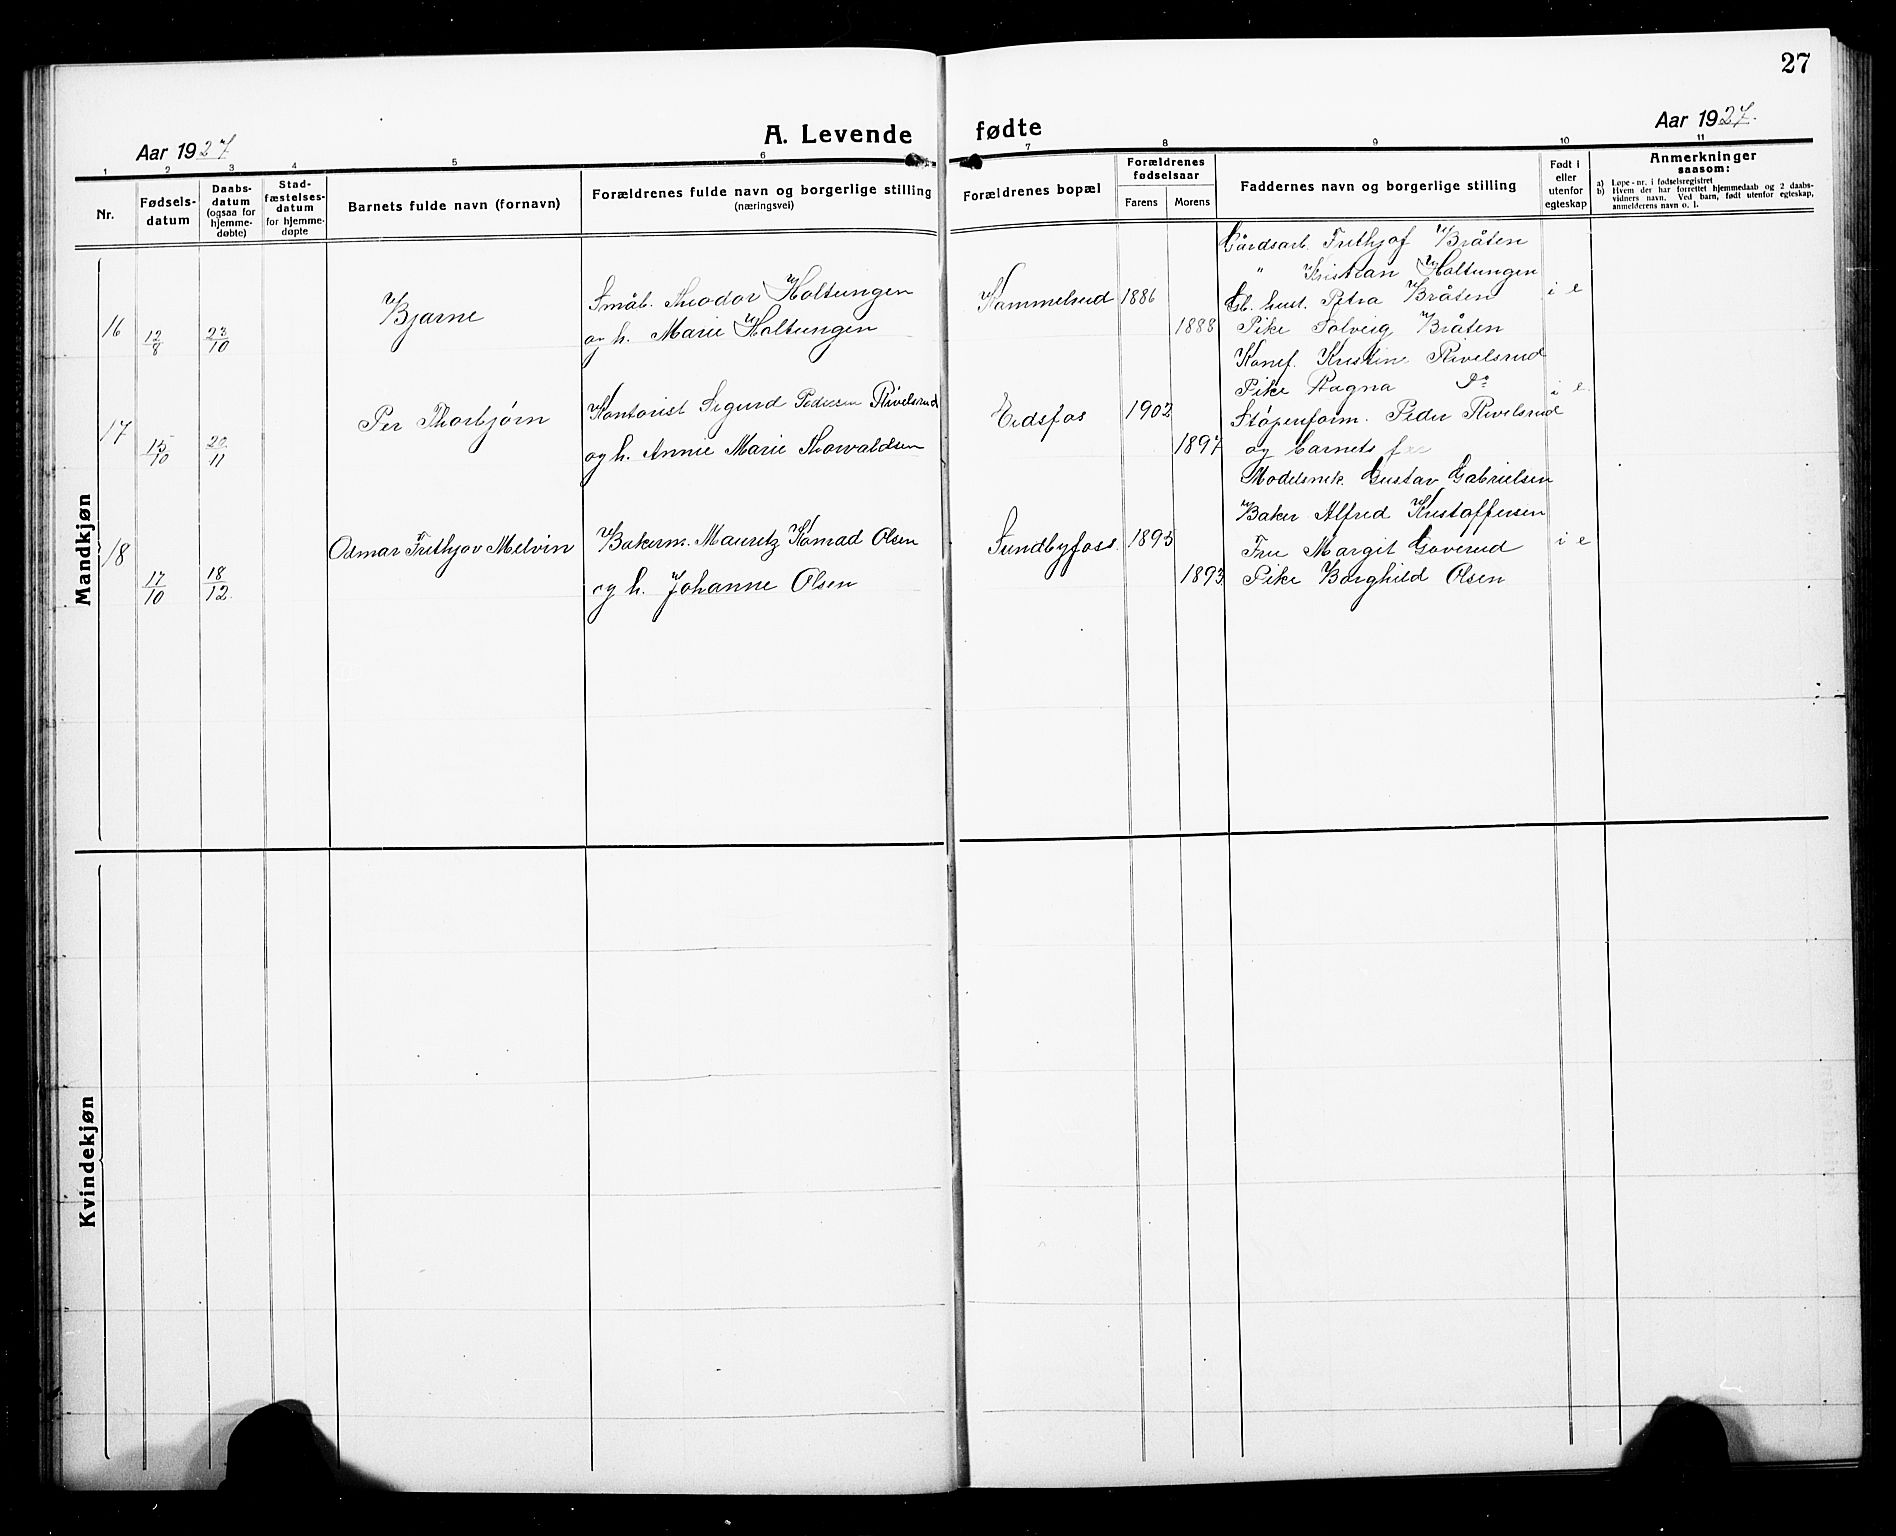 27
Aar 1927
A. Levende fødte
Aar 1927.
1 2 3 4 5 6 7 8 9 10 11
Nr.
Fødsels-
datum
Daabs-
datum
(ogsaa for
hjemme-
døbte)
Stad-
fæstelses-
datum
for hjemme-
døpte
Barnets fulde navn (fornavn)
Forældrenes fulde navn og borgerlige stilling
(næringsvei)
Forældrenes bopæl
Forældrenes
fødselsaar
Farens Morens
Faddernes navn og borgerlige stilling
Født i
eller
utenfor
egteskap
Anmerkninger
saasom:
a) Løpe-nr. i fødselsregistret
b) Hvem der har forrettet hjemmedaab og 2 daabs-
vidners navn. Ved barn, født utenfor egteskap,
anmelderens navn o. l.
Mandkjøn
16 12/8 23/10 Bjarne
Småb. Theodor Holtungen
og h. Marie Holtungen
Hammelsrud 1886
1888
Gårdsarb. Frithjof Bråten
" Kristian Holtungen
Gb. hust. Petra Bråten
Pike Solveig Bråten
i e
17 15/10 20/11 Per Thorbjørn
Kontorist Sigurd Pedersen Rivelsrud
og h. Annie Marie Thorvaldsen
Eidsfos 1902
1897
Konef. Kristine Rivelsrud
Pike Ragna Do
Støperiform. Peder Rivelsrud
og barnets
i e.
18 17/10 18/12. Odmar Frithjov Melvin
Bakerm. Mauritz Konrad Olsen
og h. Johanne Olsen
Sundbyfoss. 1895
1893
Modelsnek. Gustav Gabrielsen
Baker Alfred Kristoffersen
Fru Margit Goverud
Pike Borghild Olsen
i e
Kvindekjøn